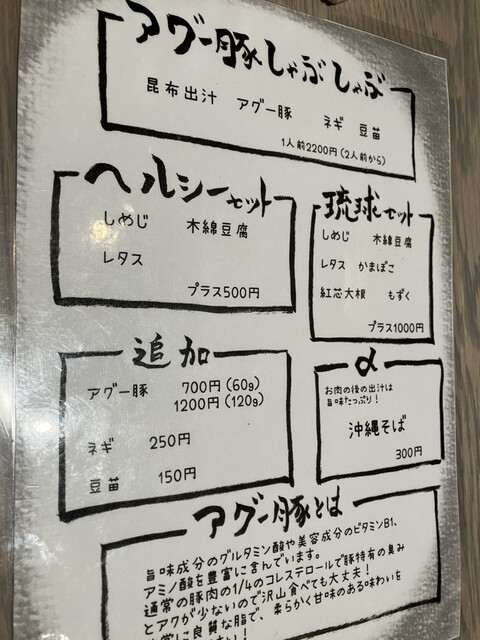 アグー豚しゃぶしゃぶ
昆布出汁 アグー豚 ネギ 豆苗
1人前2200円(2人前から)
ヘルシーセット
しめじ 木綿豆腐
レタス
プラス500円
琉球セット
しめじ 木綿豆腐
レタス かまぼこ
紅芯大根 もずく
プラス1000円
追加
アグー豚 700円(60g)
1200円(120g)
ネギ 250円
豆苗 150円
α
お肉の後の出汁は
旨味たっぷり!
沖縄そば
300円
アグー豚とは
旨味成分のグルタミン酸や美容成分のビタミンB1、
アミノ酸を豊富に含んでいます。
通常の豚肉の1/4のコレステロールで豚特有の臭み
とアクが少ないので沢山食べても大丈夫!
に良質な脂で、柔らかく甘味のある味わいを